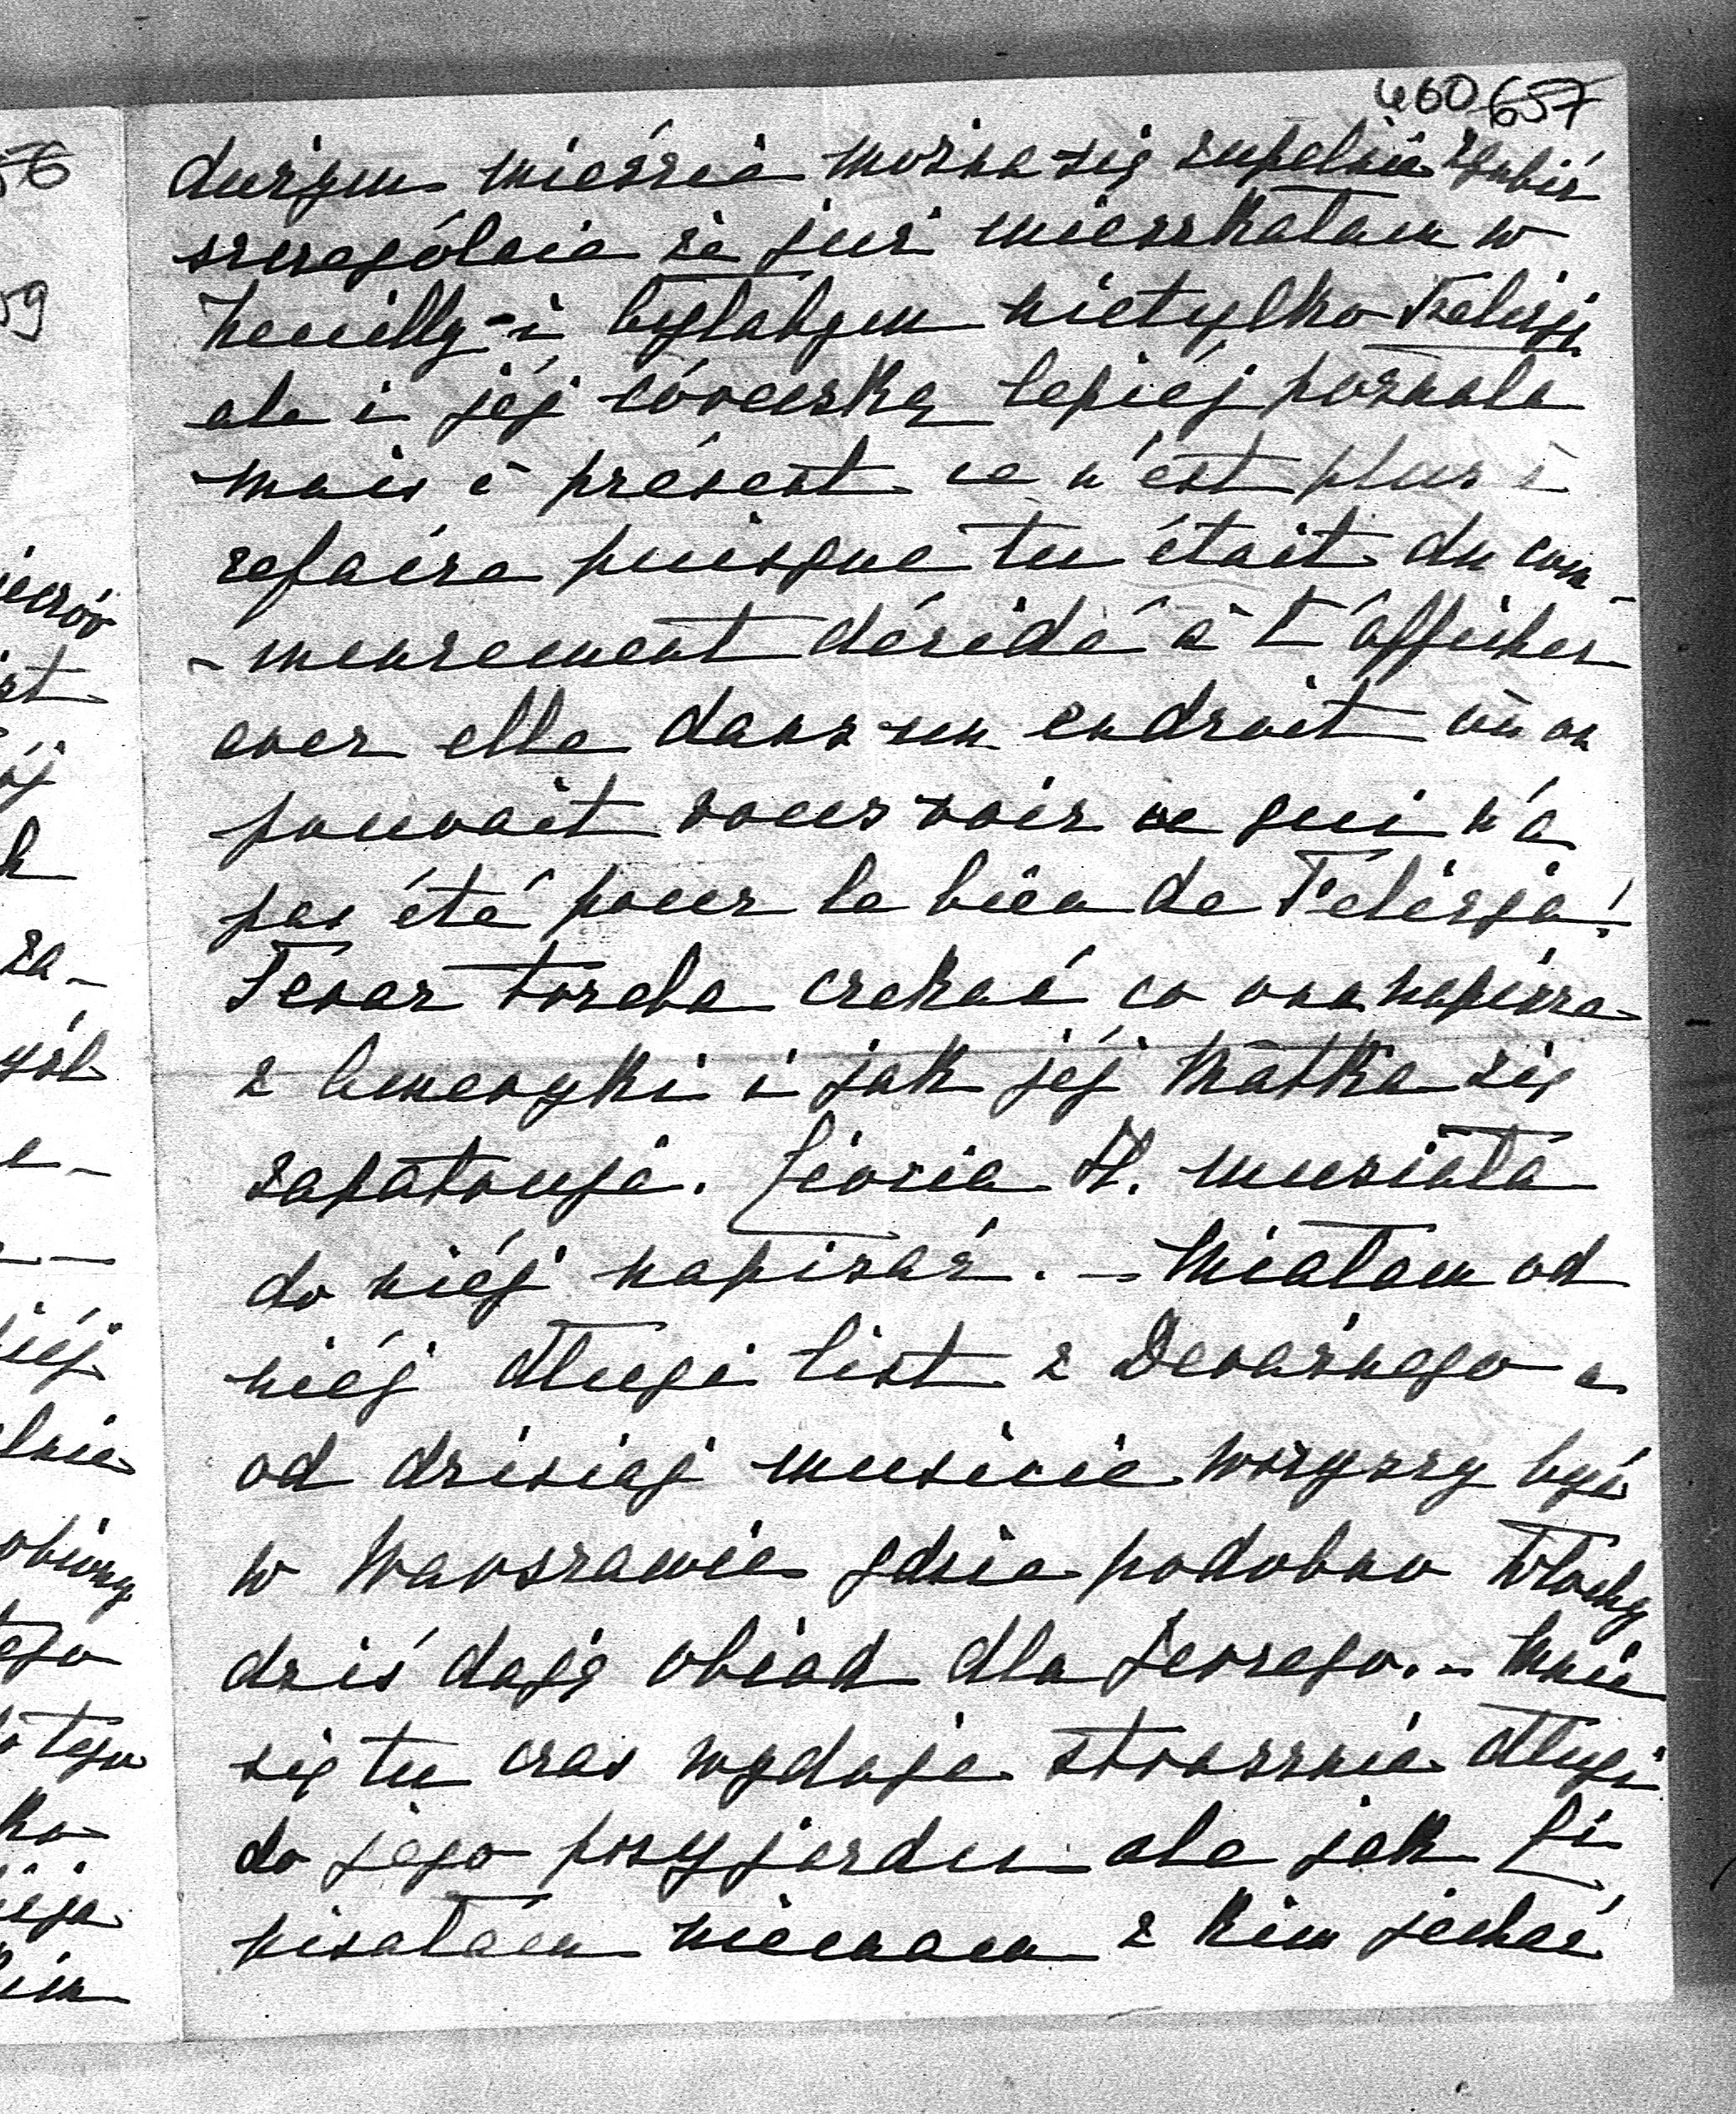 460 657
dużym mieście można się zupełnie zgubić
szczególnie że już mieszkałam w
Neuilly - i byłabym nietylko Felicję
ale i jéj córeczkę lepiéj poznała
mais à présent ce n'est plus à
refaire puisque tu était du com-
-mencement décidé à t'afficher
avec elle dans un endroit où on
pouvait vous voir ce qui n'a
pas été pour le bien de Felicja!
Teraz trzeba czekać co ona napisze
z Ameryki i jak jéj Matka się
zapatruje. Ciocia H. musiała
do niéj napisać. - Miałam od
niéj długi list z Derażnego a
od dzisiaj musicie wszyscy być
w Warszawie gdzie podobno Włochy
dziś dają obiad dla Jerzego. - Mnie
się tu czas wydaje strasznie długi
do jego przyjazdu ale jak Ci
pisałam niemam z kim jechać
56
59